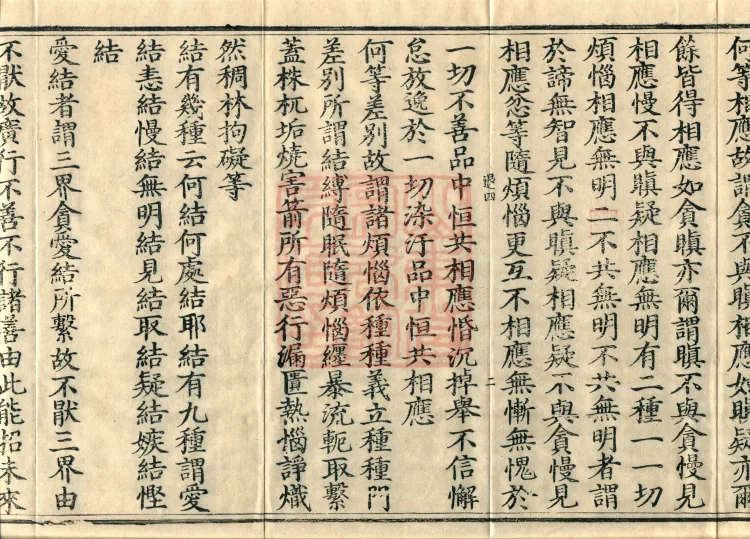 何等相應故謂貪不與瞋相應如瞋疑亦爾
餘皆得相應如貪瞋亦爾謂瞋不與貪慢見
相應慢不與瞋疑相應無明有二種一一切
煩惱相應無明二不共無明不共無明者謂
於諦無智見不與瞋疑相應疑不與貪慢見
相應忿等隨煩惱更互不相應無慚無愧於
退四 二
一切不善品中恒共相應惛沉掉舉不信懈
怠放逸於一切染汙品中恒共相應
何等差別故謂諸煩惱依種種義立種種門
差別所謂結縛隨眠隨煩惱纏暴流軛取繫
蓋株杌垢燒害箭所有惡行漏匱熱惱諍熾
然稠林拘礙等
結有幾種云何結何處結耶結有九種謂愛
結恚結慢結無明結見結取結疑結嫉結慳
結
愛結者謂三界貪愛結所繫故不猒三界由
不猒故廣行不善不行諸善由此能招未來